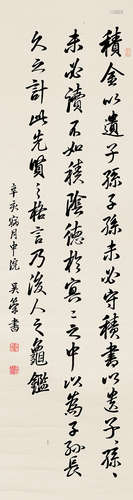 積金以遺子孫子孫未必守積書以遺子孫〻
未必讀不如積陰德於冥〻之中以為子孫長
久之計此先賢〻格言乃後人之龜鑑
辛亥菊月中浣 吴榮書